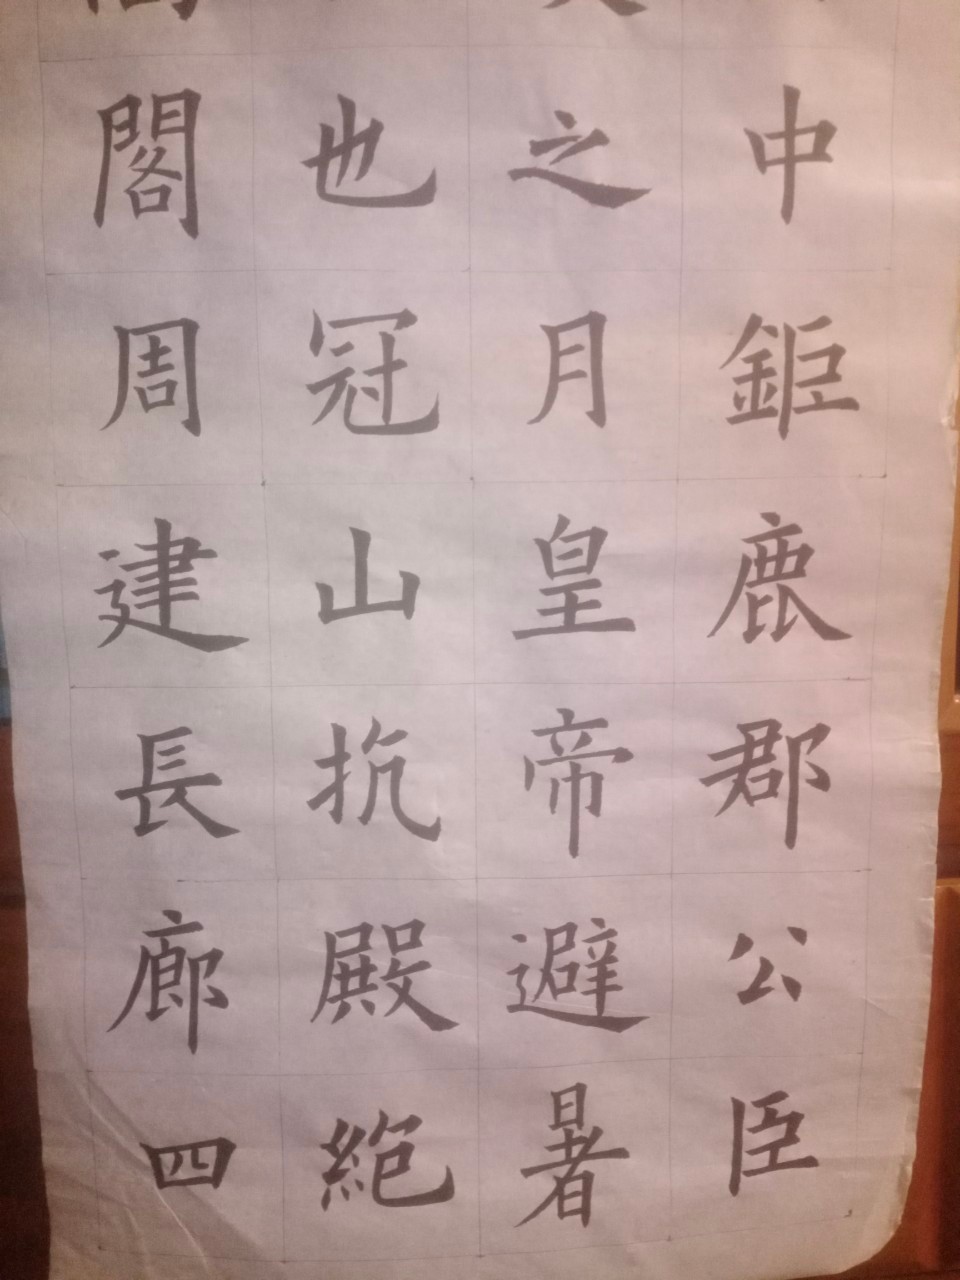 中鉅鹿郡公臣
之月皇帝避暑
也冠山抗殿絶
閣周建長廊四